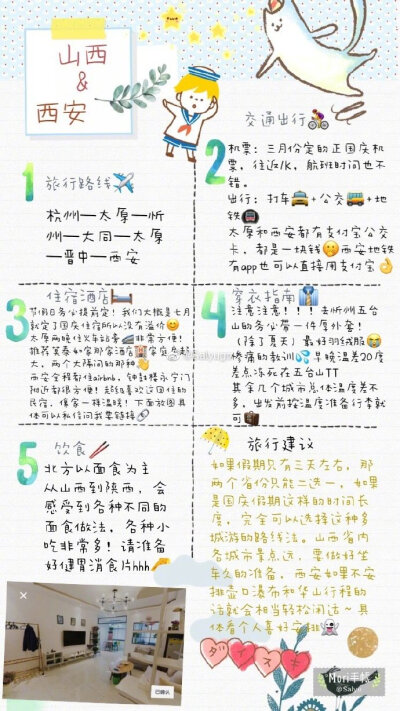 山西
&
西安
1
旅行路线
杭州—太原—忻
州—大同—太原
—晋中—西安
2
交通出行
机票：三月份定的正国庆机
票，往返1K，航班时间也不
错。
出行：打车+公交+地
铁
太原和西安都有支付宝公交
卡，都是一块钱西安地铁
有app也可以直接用支付宝
3
住宿酒店
节假日务必提前定！我们大概是七月
就定了国庆住宿所以没有溢价
太原两晚住火车站旁非常方便！
推荐美泰如家那家酒店家庭房超
大，两个大隔间的那种
西安全程都住airbnb，钟鼓楼永宁门
附近都很方便！超级喜欢这回住的
民宿，像家一样温暖！下面放图具
体可以私信问我要链接
4
穿衣指南
注意注意！！！去忻州五台
山的务必带一件厚外套！
（除了夏天）最好羽绒服
惨痛的教训早晚温差20度
差点冻死在五台山TT
其余几个城市总体温度差不
多，出发前按温度准备行李就
可
5
饮食
北方以面食为主
从山西到陕西，会
感受到各种不同的
面食做法，各种小
吃非常多！请准备
好健胃消食片hhh
旅行建议
如果假期只有三天左右，那
两个省份只能二选一，如果
是国庆假期这样的时间长
度，完全可以选择这种多
城游的路线法。山西省内
各城市景点远，要做好坐
车久的准备，西安如果不安
排壶口瀑布和华山行程的
话就会相当轻松闲适~具
体看个人喜好安排
ダイスキ
已确认
Mori手帐
@Salyu